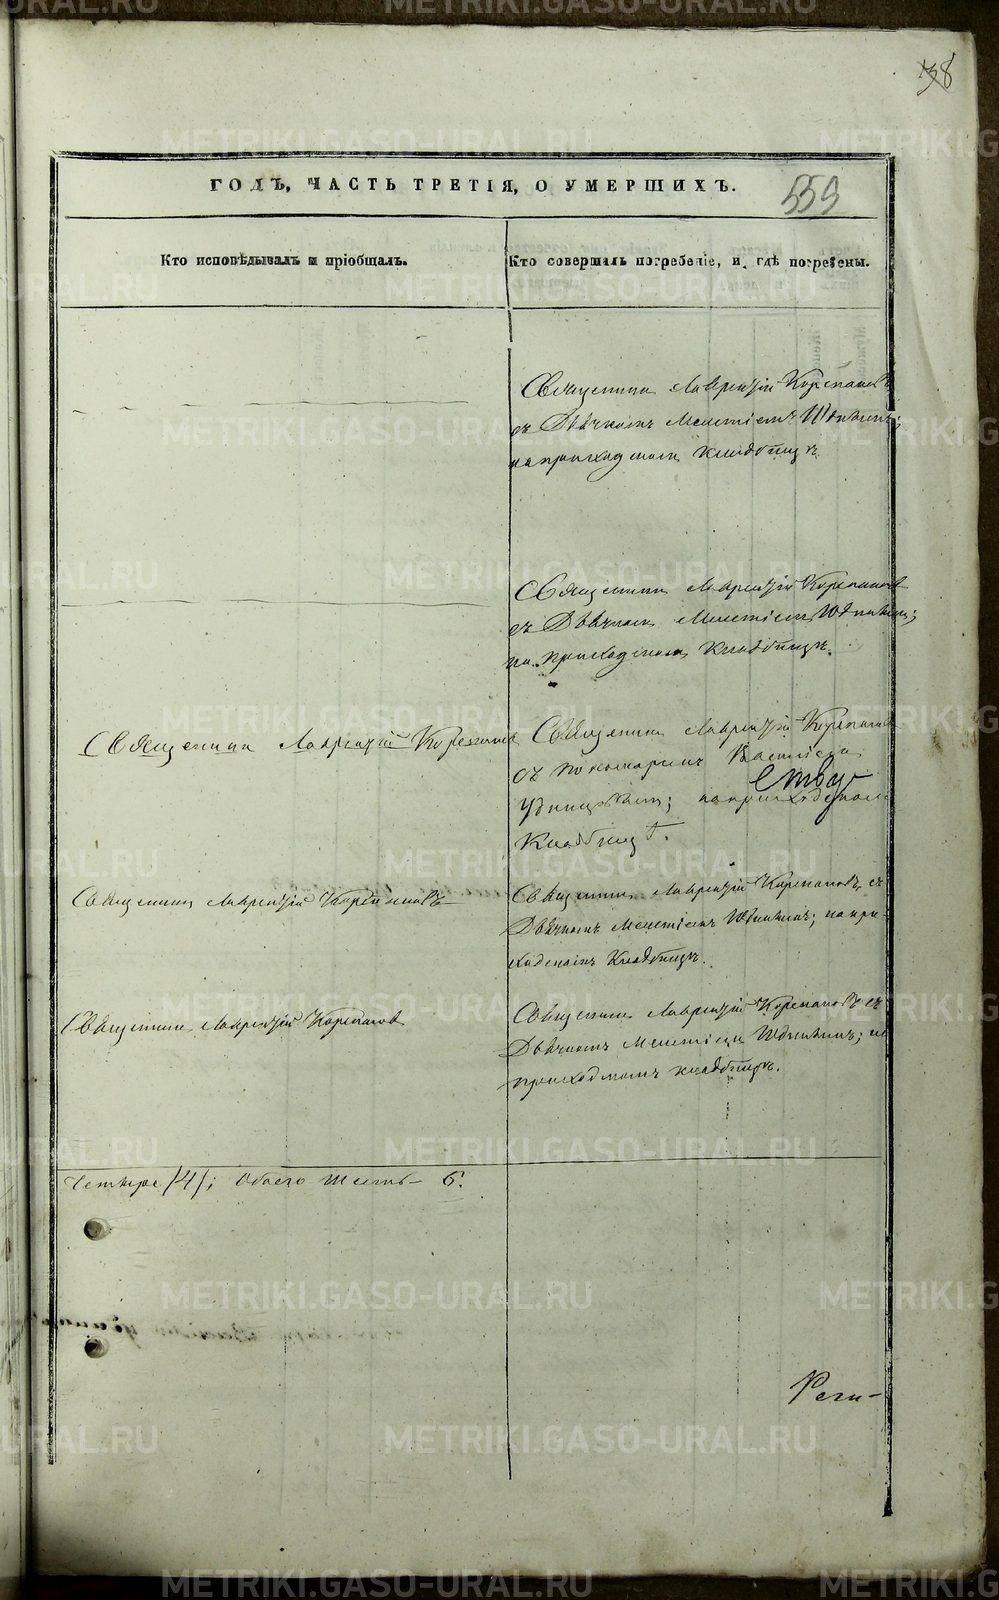 38
ГОДЪ, ЧАСТЬ ТРЕТІЯ, О УМЕРШИХЪ.
559
Кто исповѣдывалъ и пріобщалъ.
Кто совершалъ погребеніе, и гдѣ погребены.
Священникъ Лаврентій Корепановъ
съ Дьячкомъ Мелетіемъ
на приходскомъ кладбищѣ
Священникъ Лаврентій Корепановъ
съ Дьячкомъ Мелетіемъ
на приходскомъ кладбищѣ.
Священникъ Лаврентій Корепановъ
Священникъ Лаврентій Корепановъ
съ пономаремъ
Удинцовымъ; на приходскомъ
кладбищѣ.
Священникъ Лаврентій Корепановъ
Священникъ Лаврентій Корепановъ съ
Дьячкомъ Мелетіемъ на при-
ходскомъ кладбищѣ.
Священникъ Лаврентій Корепановъ
Священникъ Лаврентій Корепановъ съ
Дьячкомъ Мелетіемъ на
приходскомъ кладбищѣ.
Четыре /4/; Обоего шесть 6.
METRIKI.GASO-URAL.RU